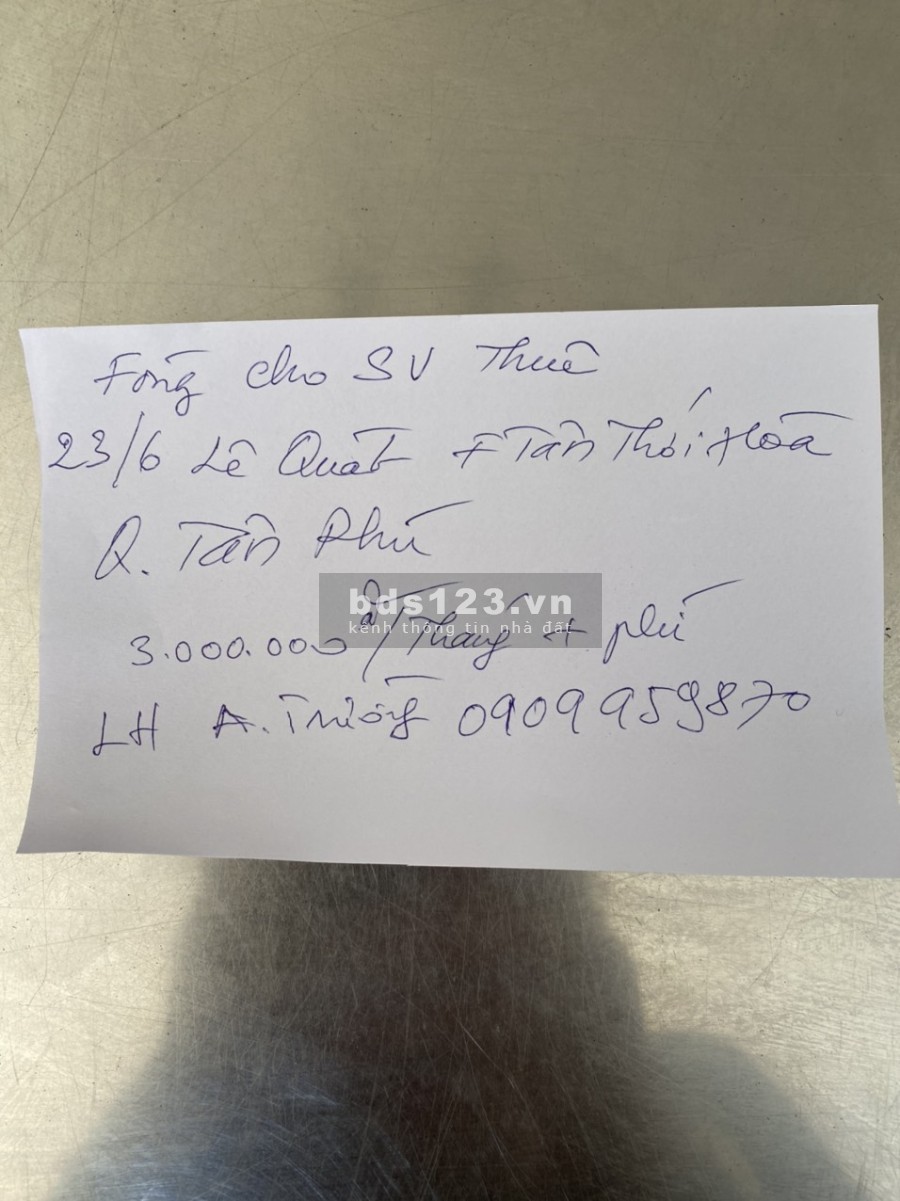 Fòng cho SV Thuê
23/6 Lê Quát F Tân Thới Hoà
Q. Tân Phú
bds123.vn
kênh thông tin nhà đất
3.000.000 đ/Tháng + phí
LH A. Trường 0909959870